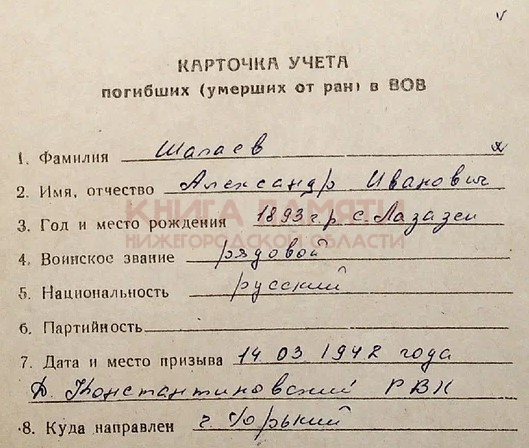 КАРТОЧКА УЧЕТА
погибших (умерших от ран) в ВОВ
1. Фамилия Шалаев
2. Имя, отчество Александр Иванович
КНИГА ПАМЯТИ
3. Год и место рождения 1893 г р с. Лазазеи
НИЖЕГОРОДСКОЙ ОБЛАСТИ
4. Воинское звание рядовой
5. Национальность русский
6. Партийность
7. Дата и место призыва 14 03 1942 года
Д. Константиновский РВК
8. Куда направлен г. Горький